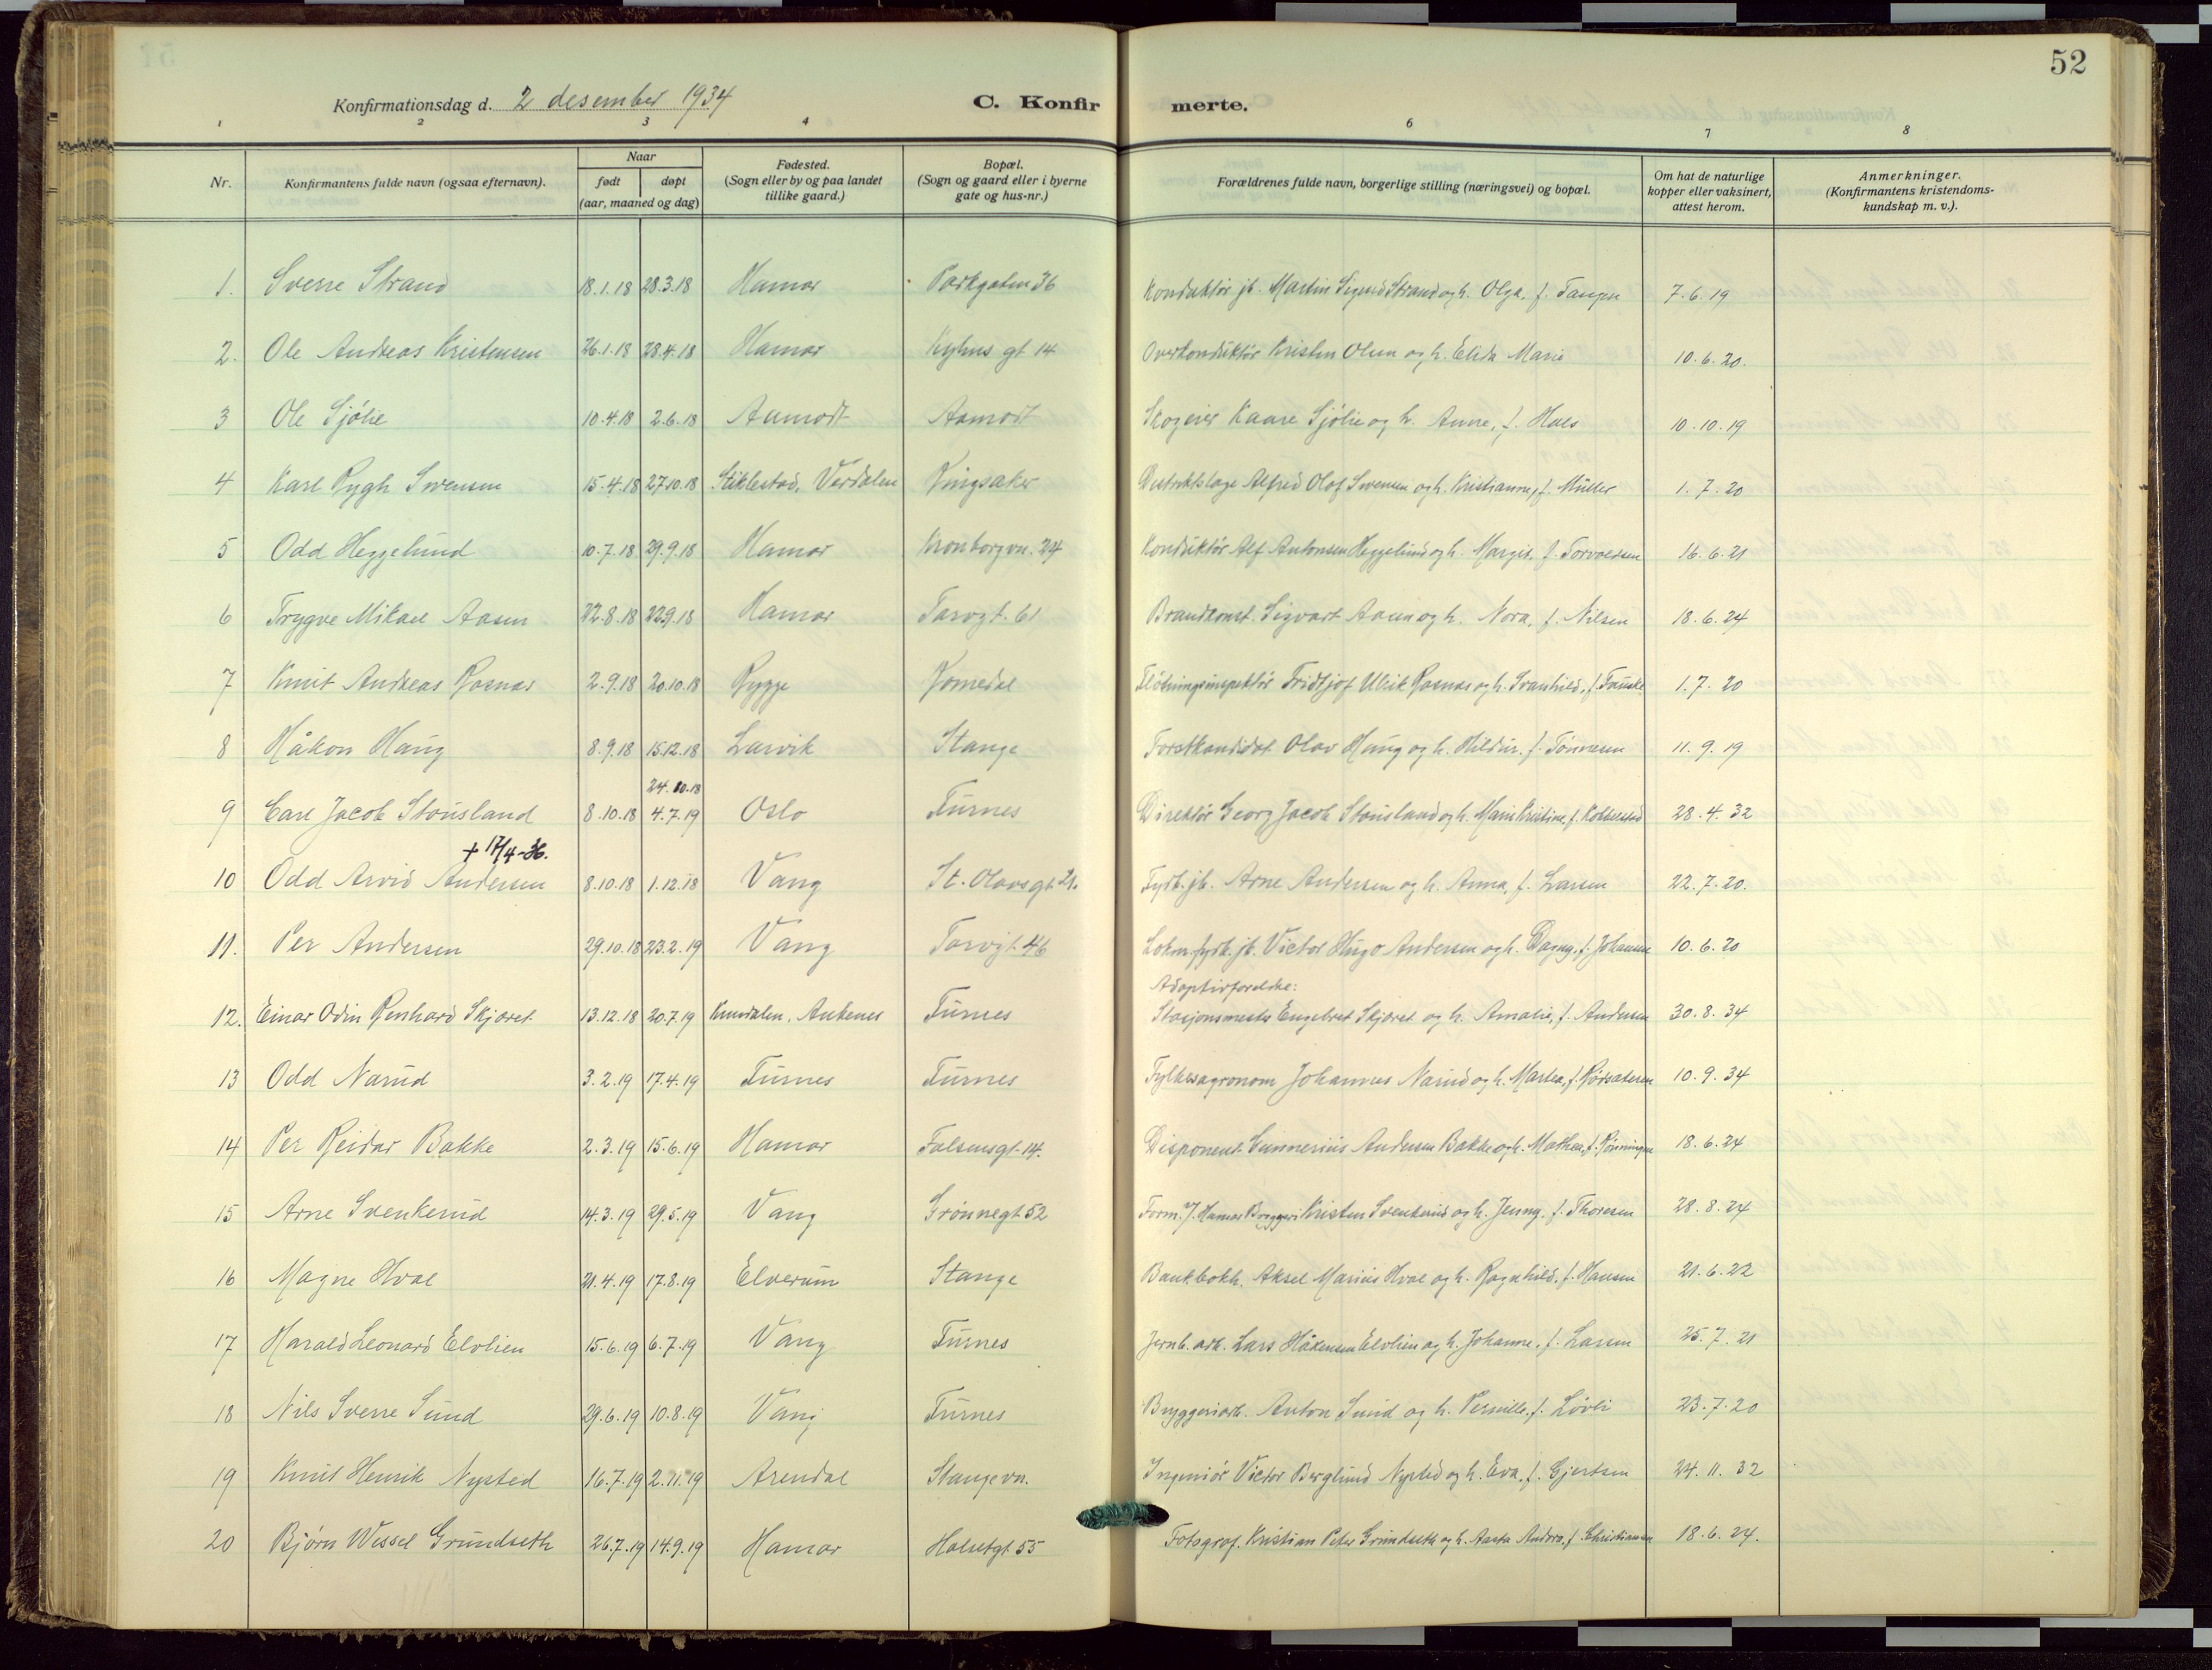 52
Konfirmationsdag d. 2 desember 1934
C. Konfir merte.
1 2 3 4 6 7 8
Nr. Konfirmantens fulde navn (ogsaa efternavn). Naar født døpt (aar, maaned og dag) Fødested. (Sogn eller by og paa landet tillike gaard.) Bopæl. (Sogn og gaard eller i byerne gate og hus-nr.) Forældrenes fulde navn, borgerlige stilling (næringsvei) og bopæl. Om hat de naturlige kopper eller vaksinert, attest herom. Anmerkninger. (Konfirmantens kristendoms-kundskap m. v.).
1. Sverre Strand 18.1.18 28.3.18 Hamar Parkgaten 36 Konduktør jb. Martin Sigurd Strand og h. Olga, f. Tangen 7.6.19
2. Ole Andreas Kristensen 26.1.18 28.4.18 Hamar Kyhns gt 14 Overkonduktør Kristen Olsen og h. Elida Marie 10.6.20.
3 Ole Sjølie 10.4.18 2.6.18 Aamodt Aamodt Skogeier Kaare Sjølie og h. Anne, f. Haes 10.10.19
4 Karl Rygh Swensen 15.4.18 27.10.18 Stiklestad, Verdalen Ringsaker Distriktslæge Alfred Olof Swensen og h. Kristianne, f. Müller 1.7.20
5 Odd Heggelund 10.7.18 29.9.18 Hamar Kronborgvn. 24 Konduktør Alf Antonsen Heggelund og h. Margit, f. Torvaldsen 16.6.21
6 Trygve Mikael Aasen 22.8.18 22.9.18 Hamar Torvgt. 61 Brandkonst. Sigvart Aasen og h. Nora, f. Nilsen 18.6.24
7 Knut Andreas Rosnæs 2.9.18 20.10.18 Rygge Romedal Fløtningsinspektør Fridtjof Ulrik Rosnæs og h. Svanhild, f. Fauske 1.7.20
8 Håkon Haug 8.9.18 15.12.18 Larvik Stange Forstkandidat Olav Haug og h. Hildur, f. Tønnesen 11.9.19
24.10.18
9 Carl Jacob Stousland 8.10.18 4.7.19 Oslo Furnes Direktør Georg Jacob Stousland og h. Marie Kristine, f. 28.4.32
+ 17/4-36.
10 Odd Arvid Andersen 8.10.18 1.12.18 Vang St. Olavs gt 21. Fyrb. jb. Arne Andersen og h. Anna, f. Larsen 22.7.20.
11. Per Andersen 29.10.18 23.2.19 Vang Torvgt. 46 Lokm. fyrb. jb. Victor Hugo Andersen og h. Dagny, f. Johansen 10.6.20
Adoptivforeldre:
12. Einar Odin Renhard Skjøret 13.12.18 20.7.19 Ankenes Furnes Stasjonsmester Engebret Skjøret og h. Amalie, f. Andersen 30.8.34
13 Odd Narud 3.2.19 17.4.19 Furnes Furnes Fylkesagronom Johannes Narud og h. Martea, f. Rødsæteren 10.9.34
14 Per Reidar Bakke 2.3.19 15.6.19 Hamar Falsensgt. 14. Disponent Gunnerius Andersen Bakke og h. Mathea, f. Rønningen 18.6.24
15 Arne Svenkerud 14.3.19 29.5.19 Vang Grønnegt 52 Form. v/ Hamar Bryggeri Kristen Svenkerud og h. Jenny, f. Thoresen 28.8.24
16 Magne Hval 21.4.19 17.8.19 Elverum Stange Bankbokh. Aksel Marius Hval og h. Ragnhild, f. Hansen 21.6.22
17 Harald Leonard Elvlien 15.6.19 6.7.19 Vang Furnes Jernb. arb. Lars Håkensen Elvlien og h. Johanne, f. Larsen 25.7.21
18 Nils Sverre Sund 29.6.19 10.8.19 Vang Furnes Bryggeriarb. Anton Sund og h. Pernille, f. Løvli 23.7.20
19 Knut Henrik Nysted 16.7.19 2.11.19 Arendal Stangevn. Ingeniør Victor Berglund Nysted og h. Eva, f. Gjertsen 24.11.32
20 Bjørn Wessel Grundseth 26.7.19 14.9.19 Hamar Holsetgt 55 Fotograf. Kristian Peter Grundseth og h. Aasta Andora, f. Christiansen 18.6.24.